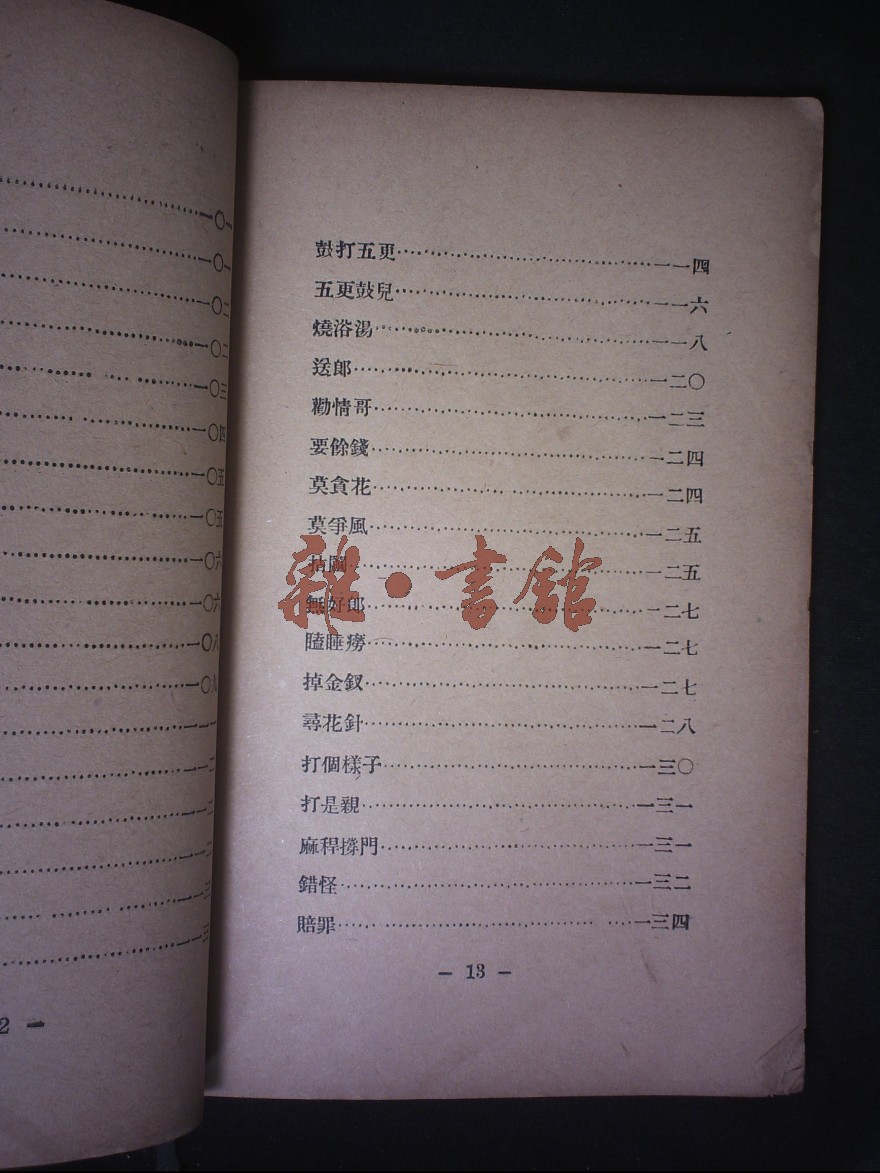 一〇一
一〇一
一〇二
一〇二
一〇三
一〇四
一〇五
一〇五
一〇六
一〇六
一〇八
一〇九
2 —
鼓打五更……一一四
五更鼓兒……一一六
燒浴湯……一一八
送郎……一二〇
勸情哥……一二三
要餘錢……一二四
莫貪花……一二四
莫爭風……一二五
……一二五
無好郎……一二七
瞌睡癆……一二七
掉金釵……一二七
尋花針……一二八
打個樣子……一三〇
打是親……一三一
麻稈撐門……一三一
錯怪……一三二
賠罪……一三四
— 13 —
雜·書館